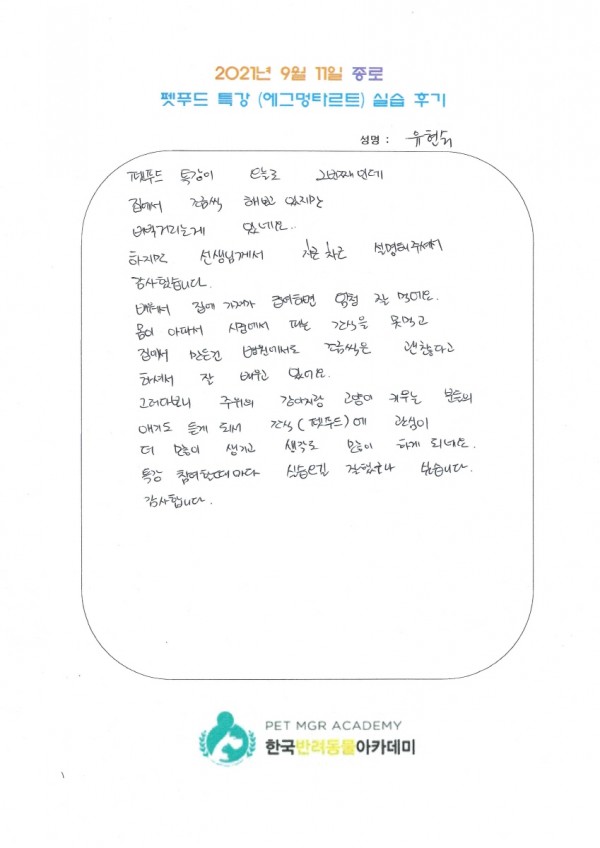 2021년 9월 11일 종로
펫푸드 특강 (에그멍타르트) 실습 후기
성명 : 유현숙
펫푸드 특강이 오늘로 2번째인데
집에서 조금씩 해보고 있지만
버벅거리는게 있네요..
하지만 선생님께서 차근 차근 설명해주셔서
감사했습니다.
배워서 집에 가져가 급여하면 엄청 잘 먹어요.
몸이 아파서 시점에서 파는 간식을 못먹고
집에서 만든건 병원에서도 조금씩은 괜찮다고
하셔서 잘 배우고 있어요.
그러다보니 주위의 강아지랑 고양이 키우는 분들의
얘기도 듣게 되서 간식(펫푸드)에 관심이
더 많이 생기고 생각도 많이 하게 되네요.
특강 참여할때마다 실습오길 잘했구나 싶습니다.
감사합니다.
PET MGR ACADEMY
한국반려동물아카데미